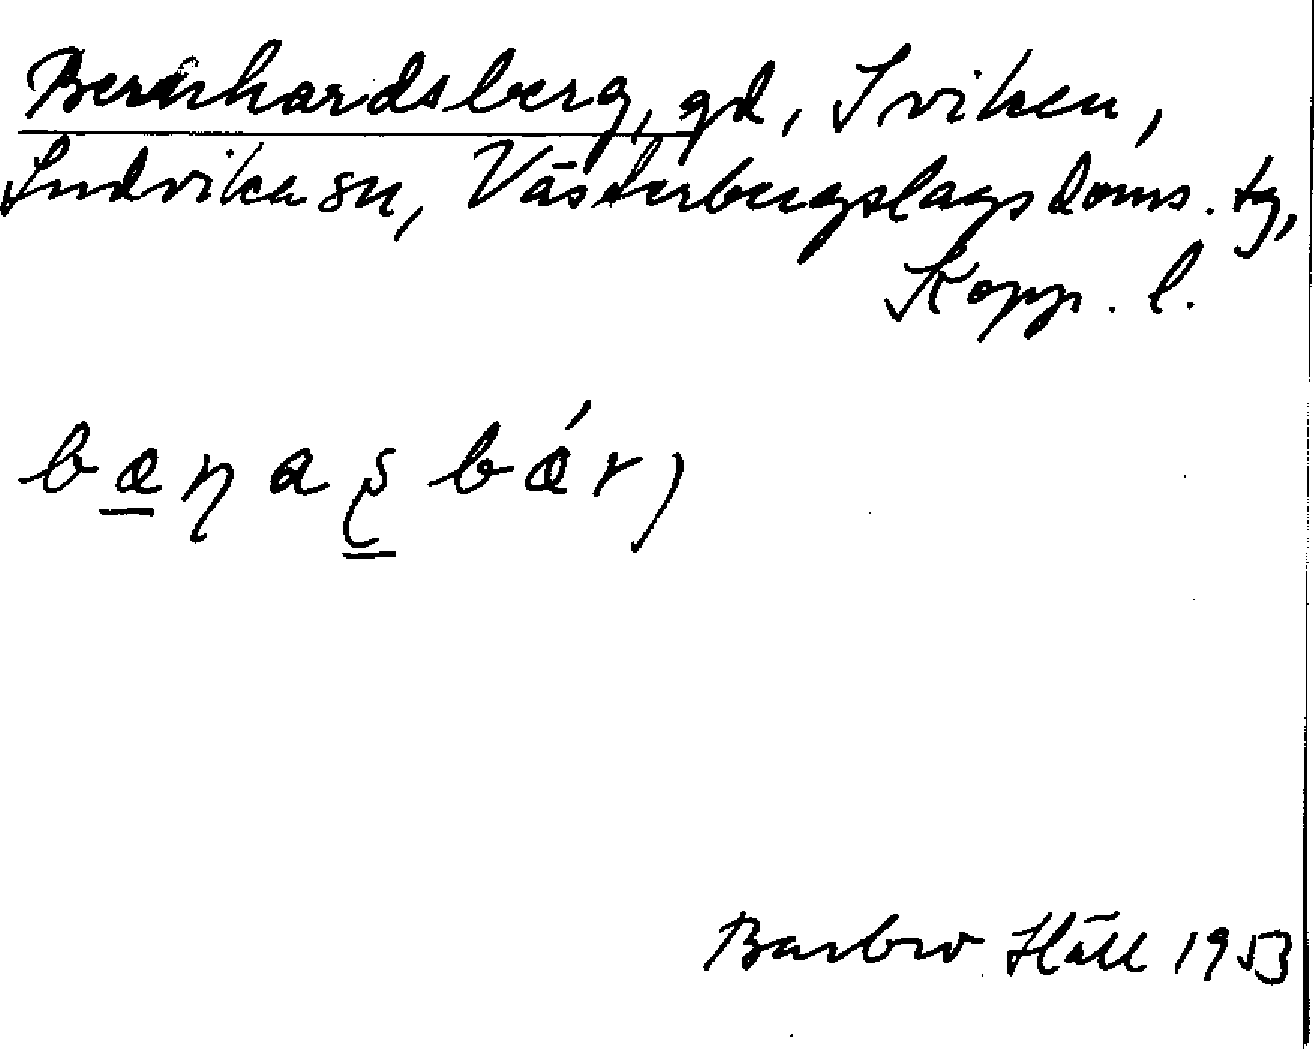 Bernhardsberg, gd, Iviken,
Ludvika sn, Västerbergslags doms. tg,
Kopp. l.
bæɳaʂbǽrj
Barbro Häll 1953